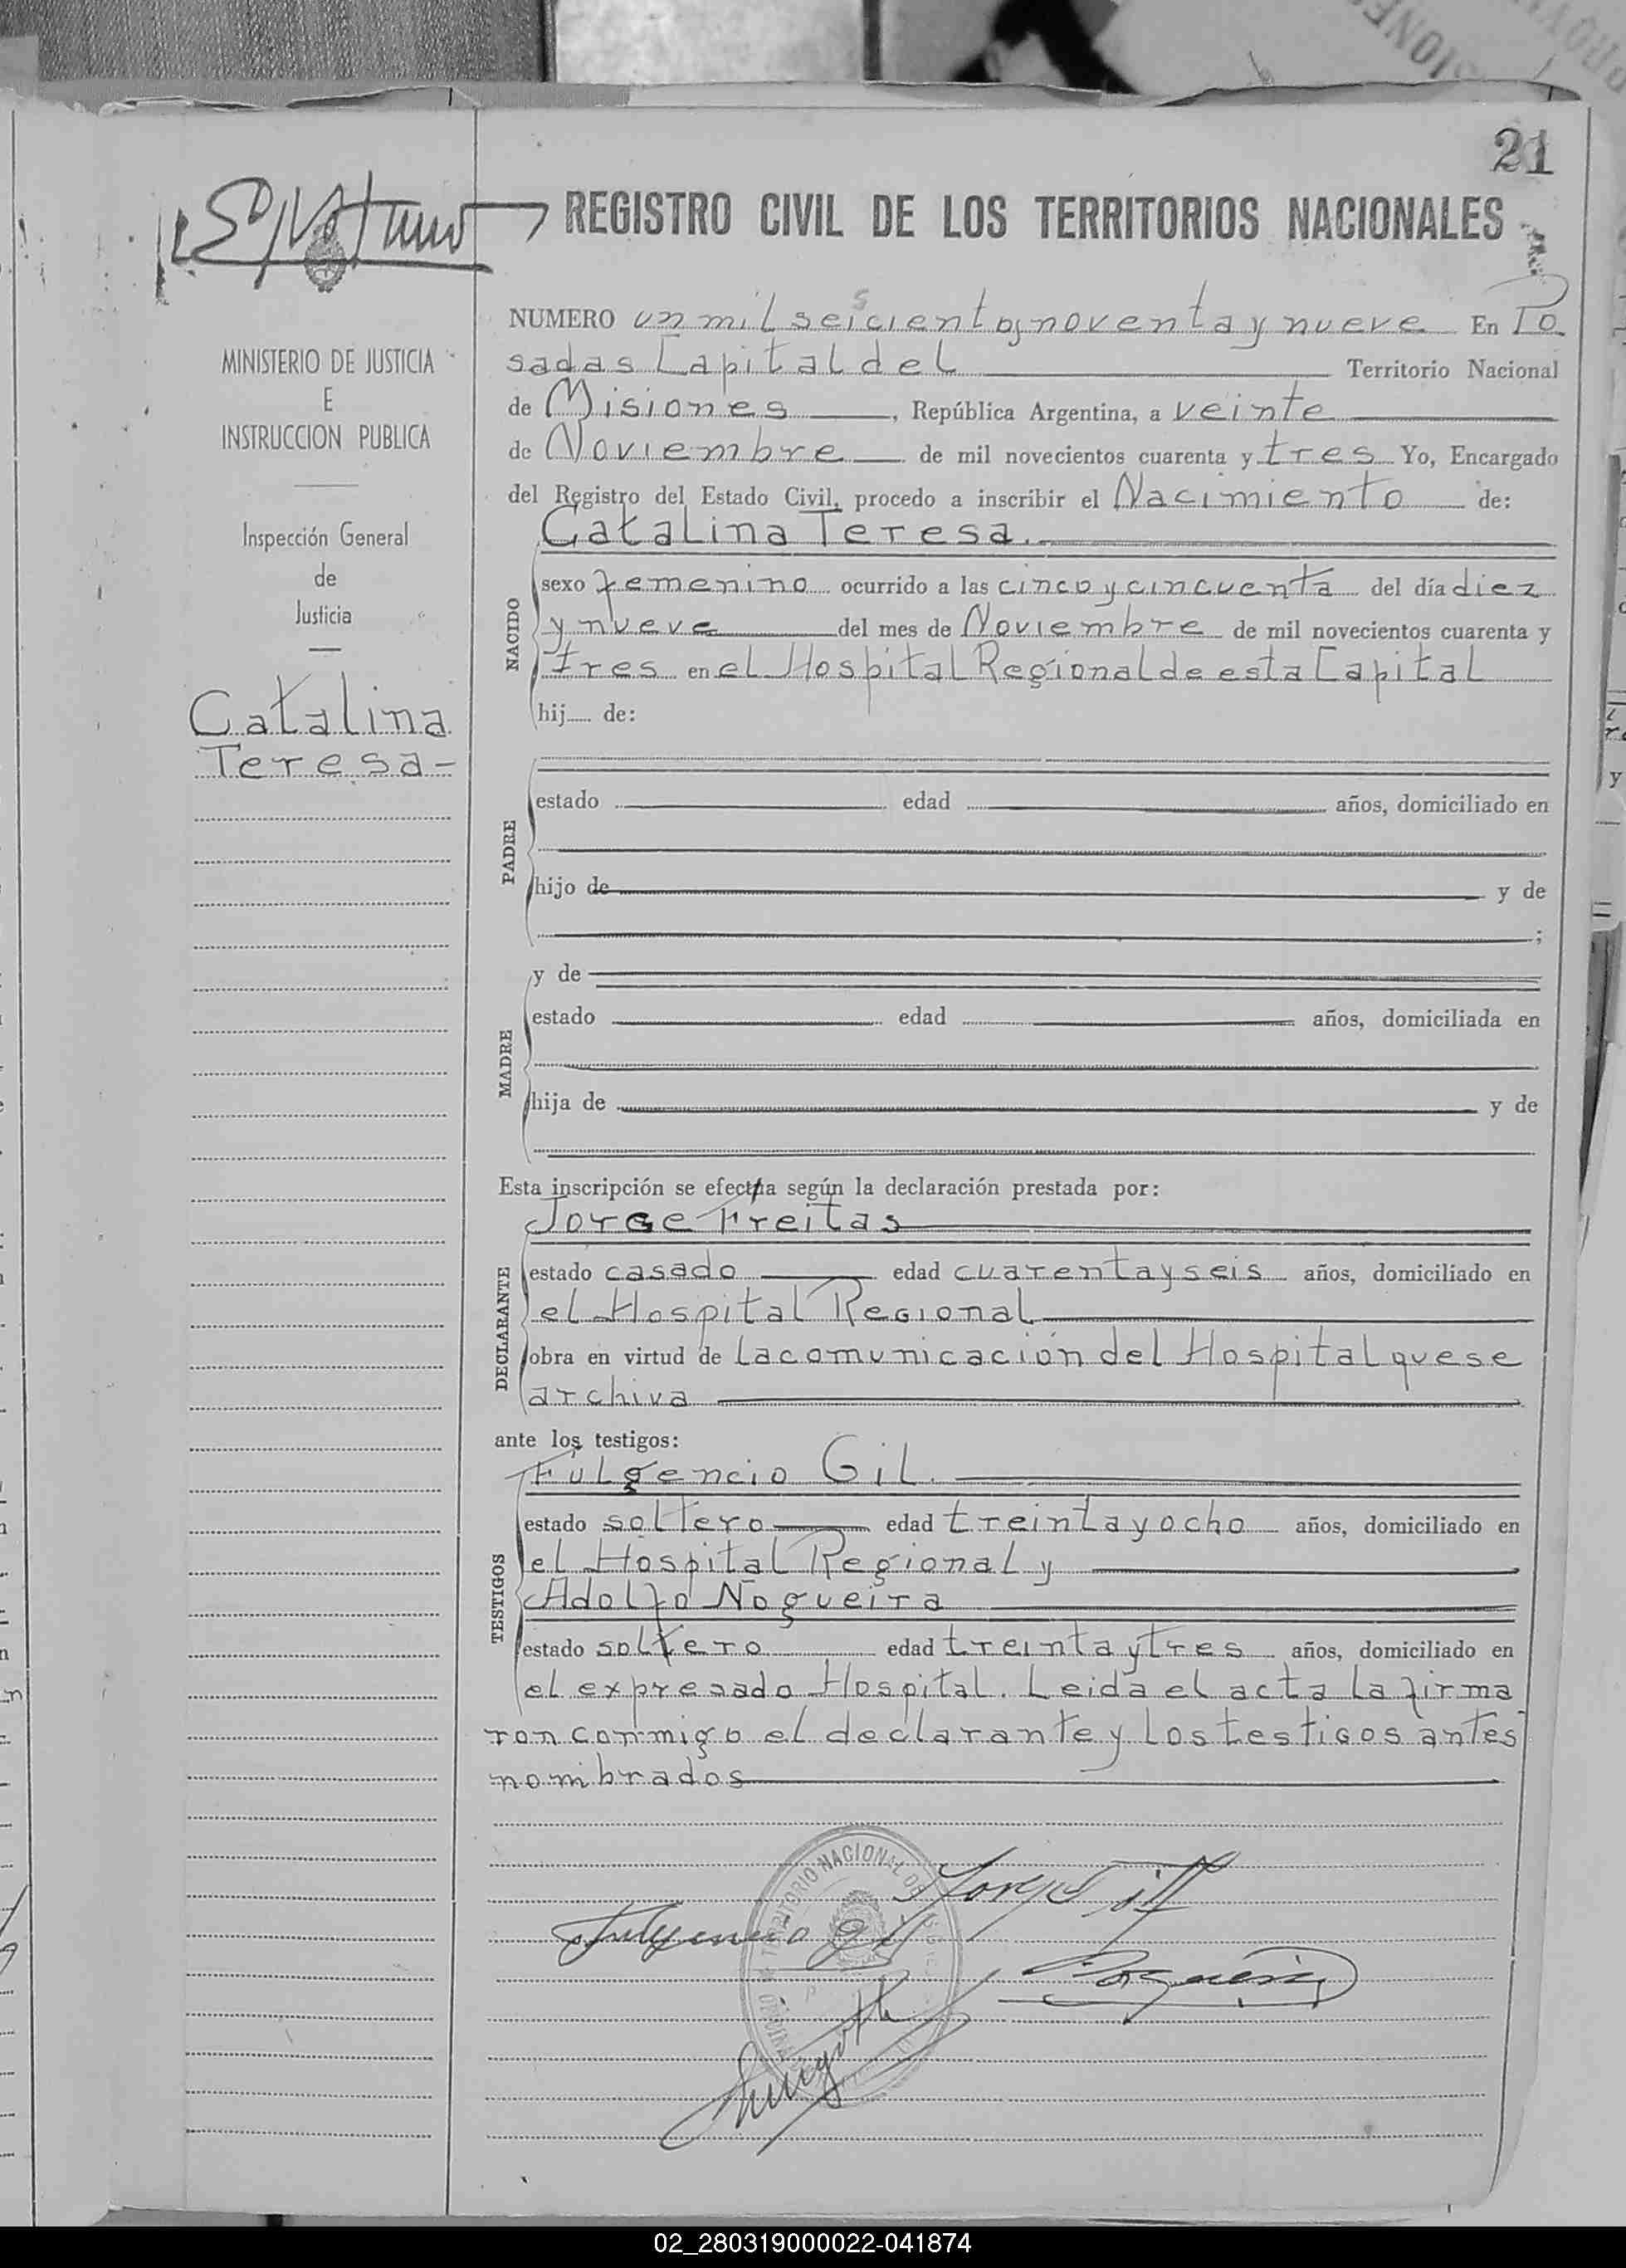 21
REGISTRO CIVIL DE LOS TERRITORIOS NACIONALES
NUMERO un mil seiscientos noventa y nueve En Po
sadas Capital del Territorio Nacional
de Misiones, República Argentina, a veinte
de Noviembre de mil novecientos cuarenta y tres Yo, Encargado
del Registro del Estado Civil, procedo a inscribir el Nacimiento de:
Catalina Teresa.
NACIDO
sexo femenino ocurrido a las cinco y cincuenta del día diez
y nueve del mes de Noviembre de mil novecientos cuarenta y
tres en el Hospital Regional de esta Capital
hij de:
PADRE
estado edad años, domiciliado en
hijo de y de
;
MADRE
y de
estado edad años, domiciliada en
hija de y de
Esta inscripción se efectúa según la declaración prestada por:
Jorge Freitas
DECLARANTE
estado casado edad cuarenta y seis años, domiciliado en
el Hospital Regional
obra en virtud de la comunicación del Hospital que se
archiva
ante los testigos:
Fulgencio Gil.
TESTIGOS
estado soltero edad treinta y ocho años, domiciliado en
el Hospital Regional y
Adolfo Nogueira
estado soltero edad treinta y tres años, domiciliado en
el expresado Hospital. Leida el acta la firma
ron conmigo el declarante y los testigos antes
nombrados
TERRITORIO NACIONAL DE
Fulgencio Gil
Nogueira
MINISTERIO DE JUSTICIA
E
INSTRUCCION PUBLICA
Inspección General
de
Justicia
Catalina
Teresa-
02_280319000022-041874